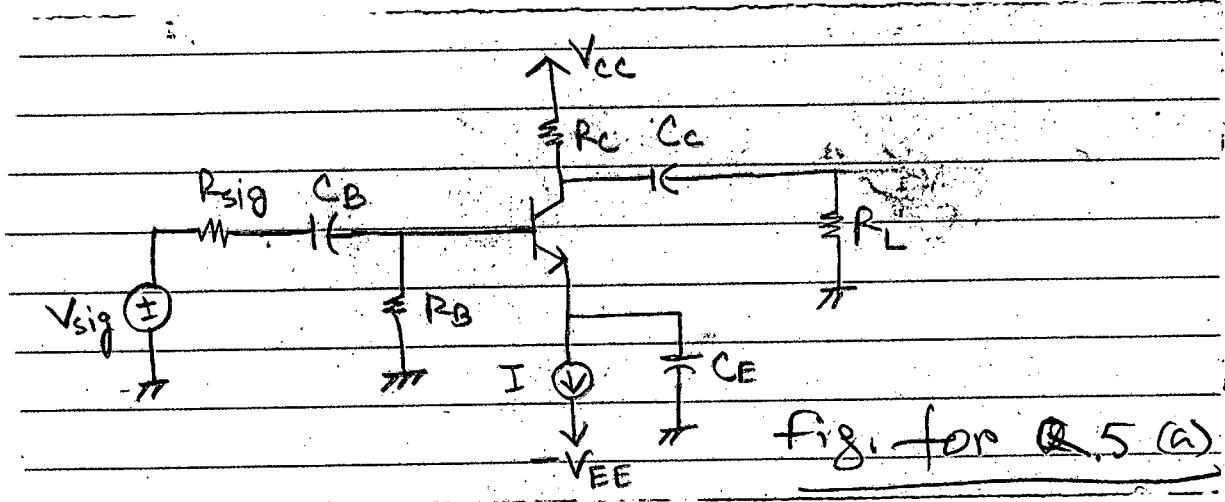 Vcc
Rc Cc
Rsig CB
RL
Vsig
RB
I
CE
-VEE
fig. for Q.5 (a)